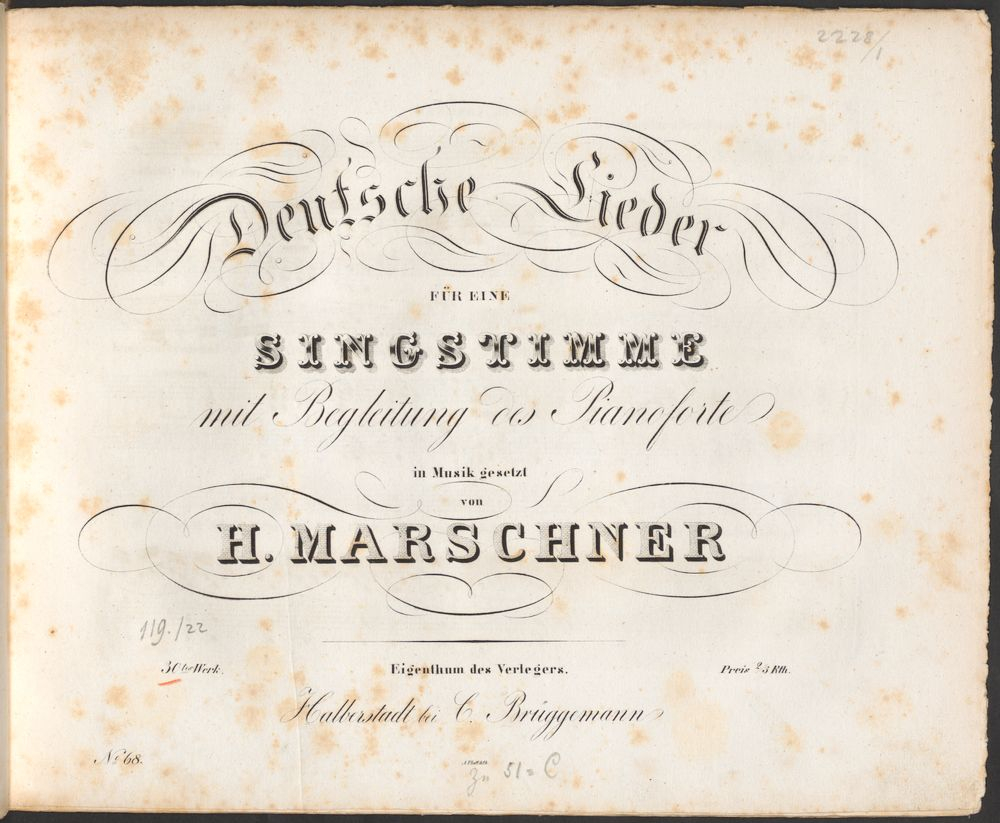 2228/1
Deutsche Lieder
FÜR EINE
SINGSTIMME
mit Begleitung des Pianoforte
in Musik gesetzt
von
H. MARSCHNER
119./22
30tes Werk.
Eigenthum des Verlegers.
Preis 2/3 Rth.
Halberstadt bei C. Brüggemann
No 68.
51= C